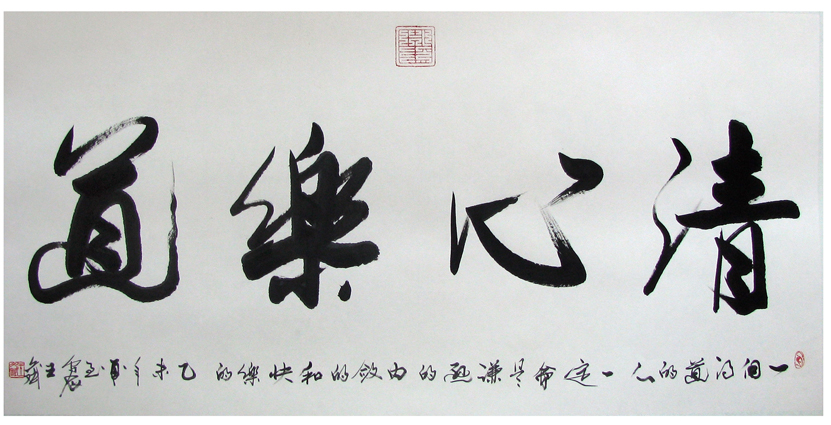 清心樂道
一個得道的人一定會是謙遜的内斂的和快樂的 乙未年夏至